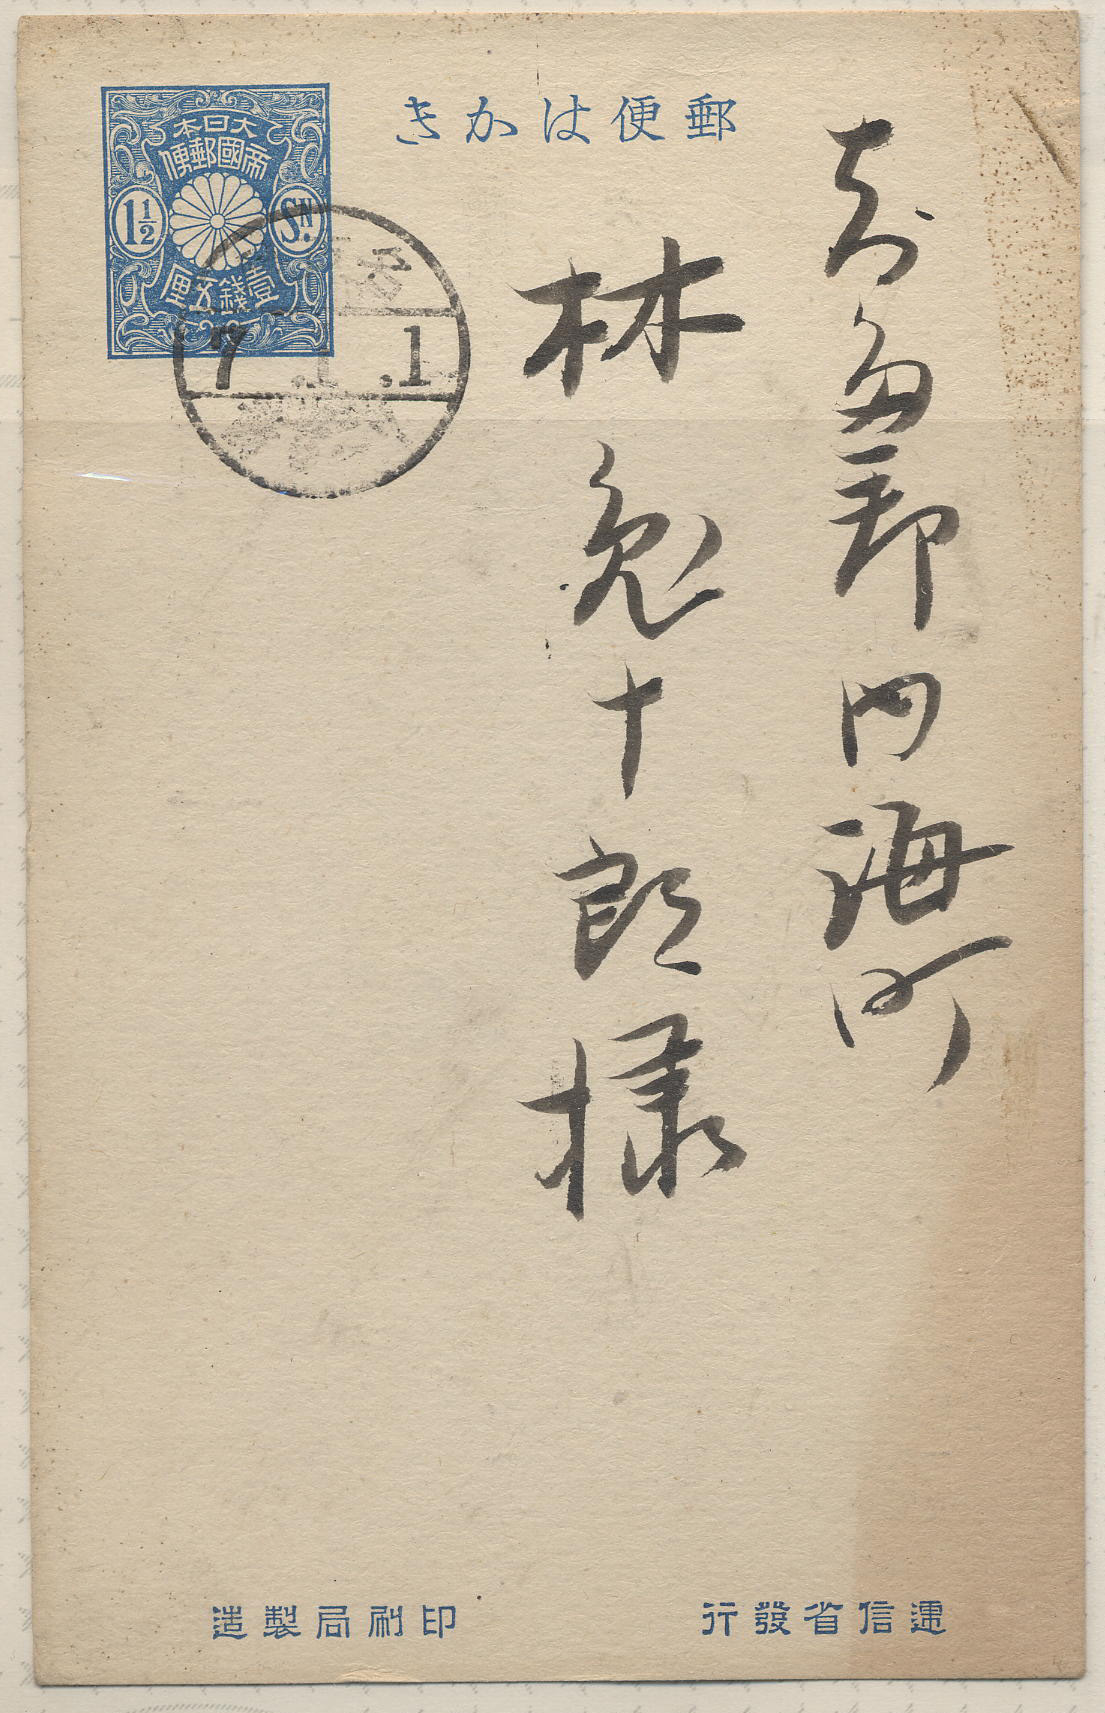 郵便はかき
大日本
帝國郵便
1½ SN.
壹錢五厘
7 .1 .1
知多郡内海町
林兎十郎様
逓信省發行
印刷局製造